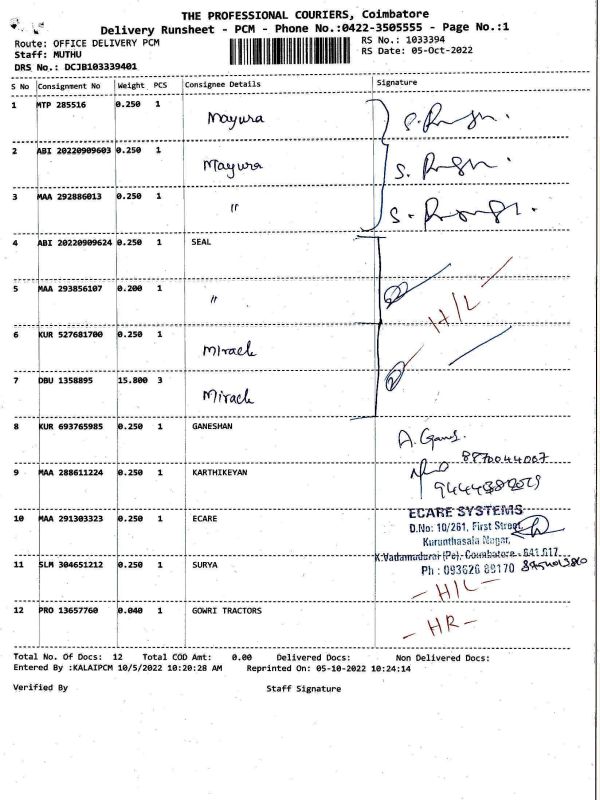 THE PROFESSIONAL COURIERS, Coimbatore
Delivery Runsheet - PCM - Phone No.:0422-3505555 - Page No.:1
Route: OFFICE DELIVERY PCM
RS No.: 1033394
Staff: MUTHU
RS Date: 05-Oct-2022
DRS No.: DCJB103339401
S No Consignment No Weight PCS Consignee Details Signature
1 MTP 285516 0.250 1 Mayura
2 ABI 20220909603 0.250 1 Mayura
3 MAA 292886013 0.250 1 "
4 ABI 20220909624 0.250 1 SEAL
5 MAA 293856107 0.200 1 " H/L
6 KUR 527681700 0.250 1 Mirack
7 DBU 1358895 15.800 3 Mirack
8 KUR 693765985 0.250 1 GANESHAN
8870044007
9 MAA 288611224 0.250 1 KARTHIKEYAN
10 MAA 291303323 0.250 1 ECARE
ECARE SYSTEMS
D.No: 10/261, First Street,
Kurunthasala Nagar,
K.Vadamadurai (Po), Coimbatore - 641 617
11 SLM 304651212 0.250 1 SURYA
Ph : 093626 89170
- H/L -
12 PRO 13657760 0.040 1 GOWRI TRACTORS
- HR -
Total No. Of Docs: 12 Total COD Amt: 0.00 Delivered Docs: Non Delivered Docs:
Entered By :KALAIPCM 10/5/2022 10:20:28 AM Reprinted On: 05-10-2022 10:24:14
Verified By Staff Signature